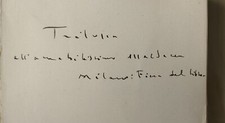 Trilussa
all'amabilissimo
Milano: Fiera del Libro